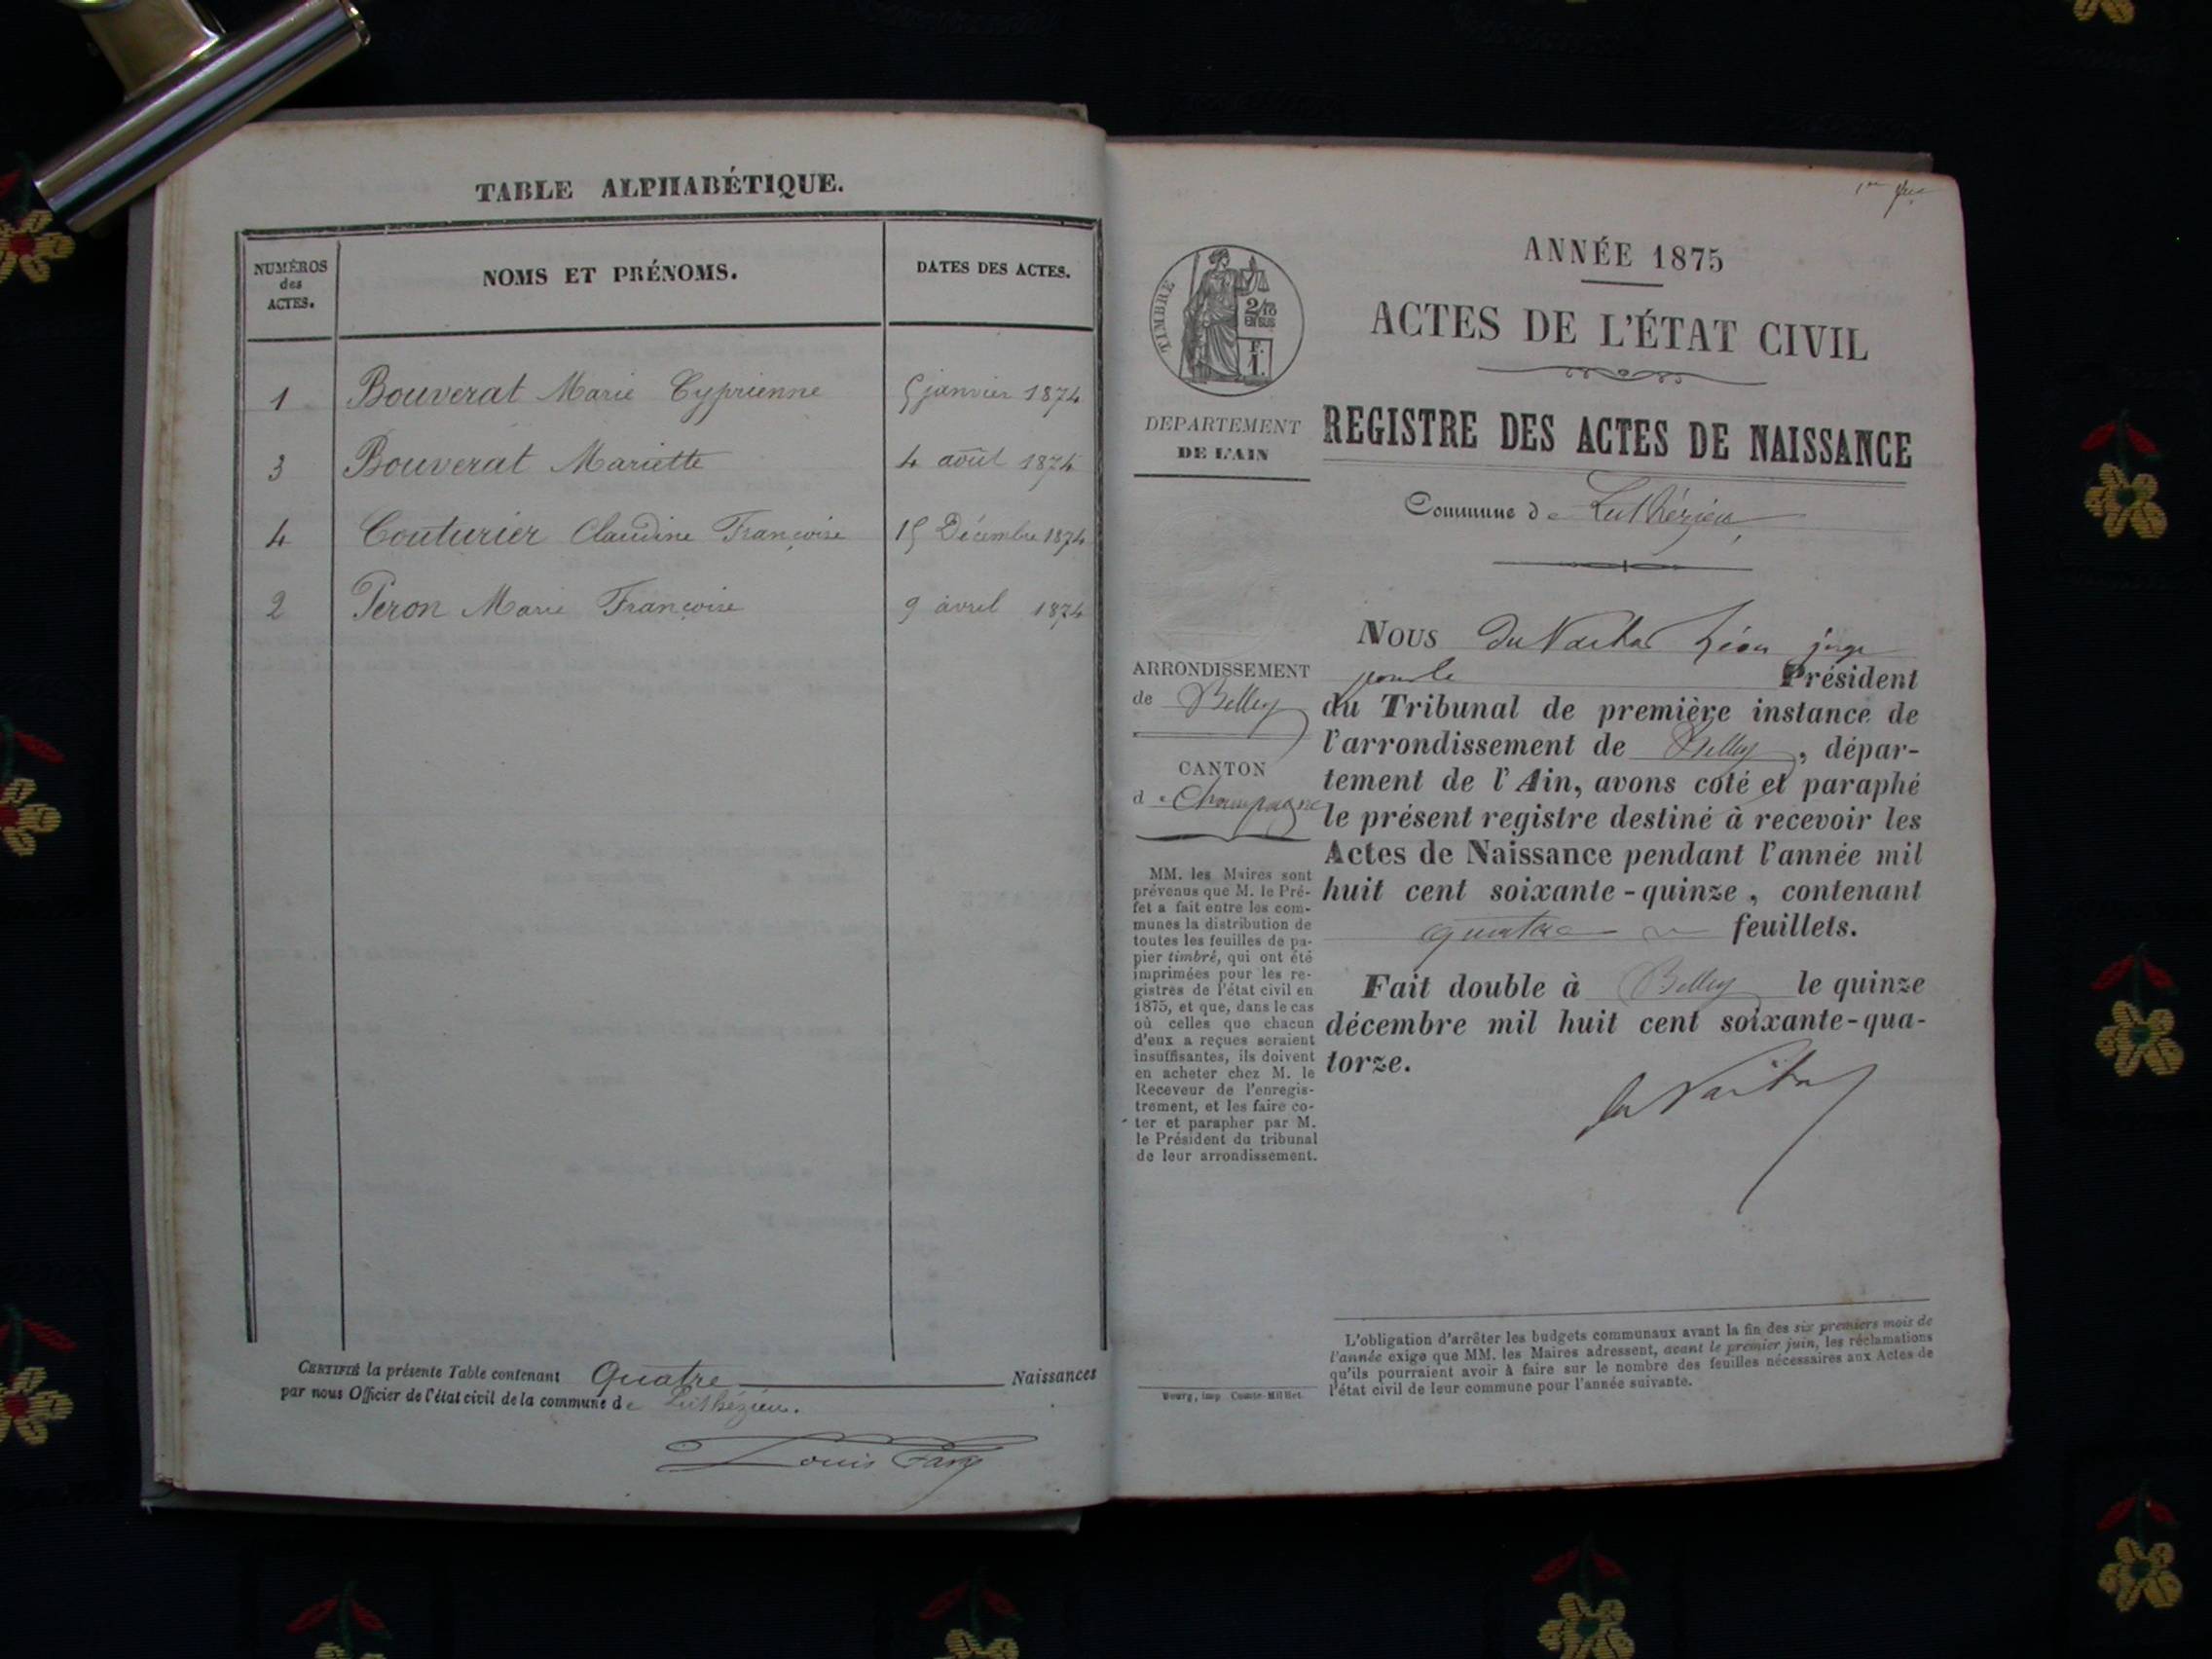 TABLE ALPHABÉTIQUE.
NUMÉROS des ACTES. NOMS ET PRÉNOMS. DATES DES ACTES.
1 Bouverat Marie Cyprienne 5 janvier 1874
3 Bouverat Mariette 4 août 1874
4 Couturier Claudine Françoise 15 Décembre 1874
2 Peron Marie Françoise 9 avril 1874
CERTIFIÉ la présente Table contenant Quatre Naissances
par nous Officier de l'état civil de la commune de Luthézieu.
Louis
ANNÉE 1875
ACTES DE L'ÉTAT CIVIL
REGISTRE DES ACTES DE NAISSANCE
Commune de Luthézieu
TIMBRE
2/10
EN SUS
F.
1.
DEPARTEMENT
DE L'AIN
ARRONDISSEMENT
de Belley
CANTON
de Champagne
MM. les Maires sont
prévenus que M. le Pré-
fet a fait entre les com-
munes la distribution de
toutes les feuilles de pa-
pier timbré, qui ont été
imprimées pour les re-
gistres de l'état civil en
1875, et que, dans le cas
où celles que chacun
d'eux a reçues seraient
insuffisantes, ils doivent
en acheter chez M. le
Receveur de l'enregis-
trement, et les faire co-
ter et parapher par M.
le Président du tribunal
de leur arrondissement.
Bourg, imp. Comte-Milliet
NOUS Léon juge
pour le Président
du Tribunal de première instance de
l'arrondissement de Belley, dépar-
tement de l'Ain, avons coté et paraphé
le présent registre destiné à recevoir les
Actes de Naissance pendant l'année mil
huit cent soixante-quinze, contenant
quatre feuillets.
Fait double à Belley le quinze
décembre mil huit cent soixante-qua-
torze.
L'obligation d'arrêter les budgets communaux avant la fin des six premiers mois de
l'année exige que MM. les Maires adressent, avant le premier juin, les réclamations
qu'ils pourraient avoir à faire sur le nombre des feuilles nécessaires aux Actes de
l'état civil de leur commune pour l'année suivante.